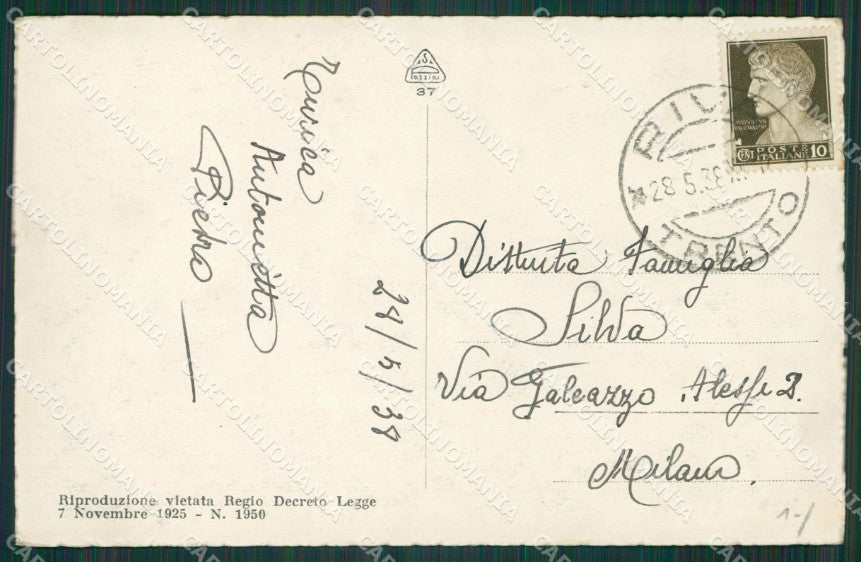 Enrica
Antonietta
Pietro
28/5/38
37
RIVA
28.5.38
TRENTO
POSTE
ITALIANE
CENT 10
Distinta Famiglia
Silva
Via Galeazzo Alessi 2.
Milano.
Riproduzione vietata Regio Decreto Legge
7 Novembre 1925 - N. 1950
CARTOLINOMANIA